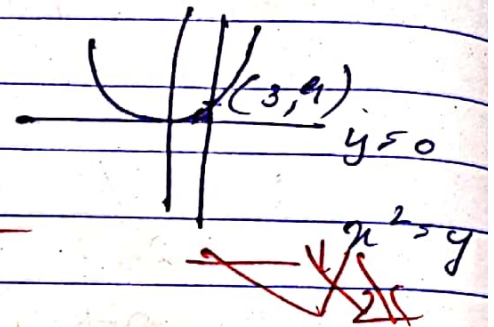 (3,9)
y=0
x²=y